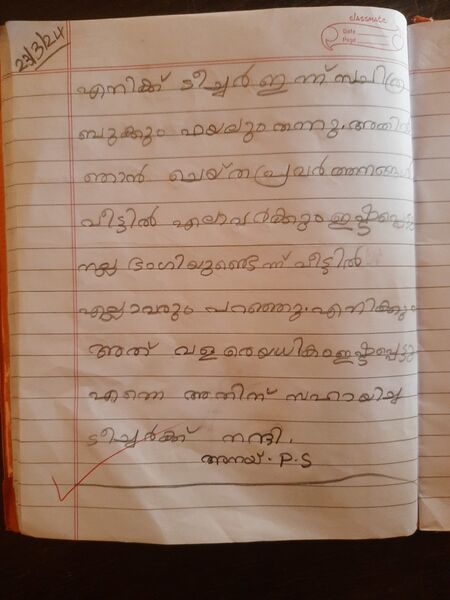 classmate
Date
Page
23/3/24
എനിക്ക് ടീച്ചർ ഇന്ന് സചിത്ര
ബുക്കും ഫയലും തന്നു. അതിൽ
ഞാൻ ചെയ്ത പ്രവർത്തനങ്ങൾ
വീട്ടിൽ എലാവർക്കും ഇഷ്ടപ്പെട്ടു
നല്ല ഭംഗിയുണ്ടെന്ന് വീട്ടിൽ
എല്ലാവരും പറഞ്ഞു. എനിക്കും
അത് വളരെയധികം ഇഷ്ടപ്പെട്ടു
എന്നെ അതിന് സഹായിച്ച
ടീച്ചർക്ക് നന്ദി.
അനയ്. P.S